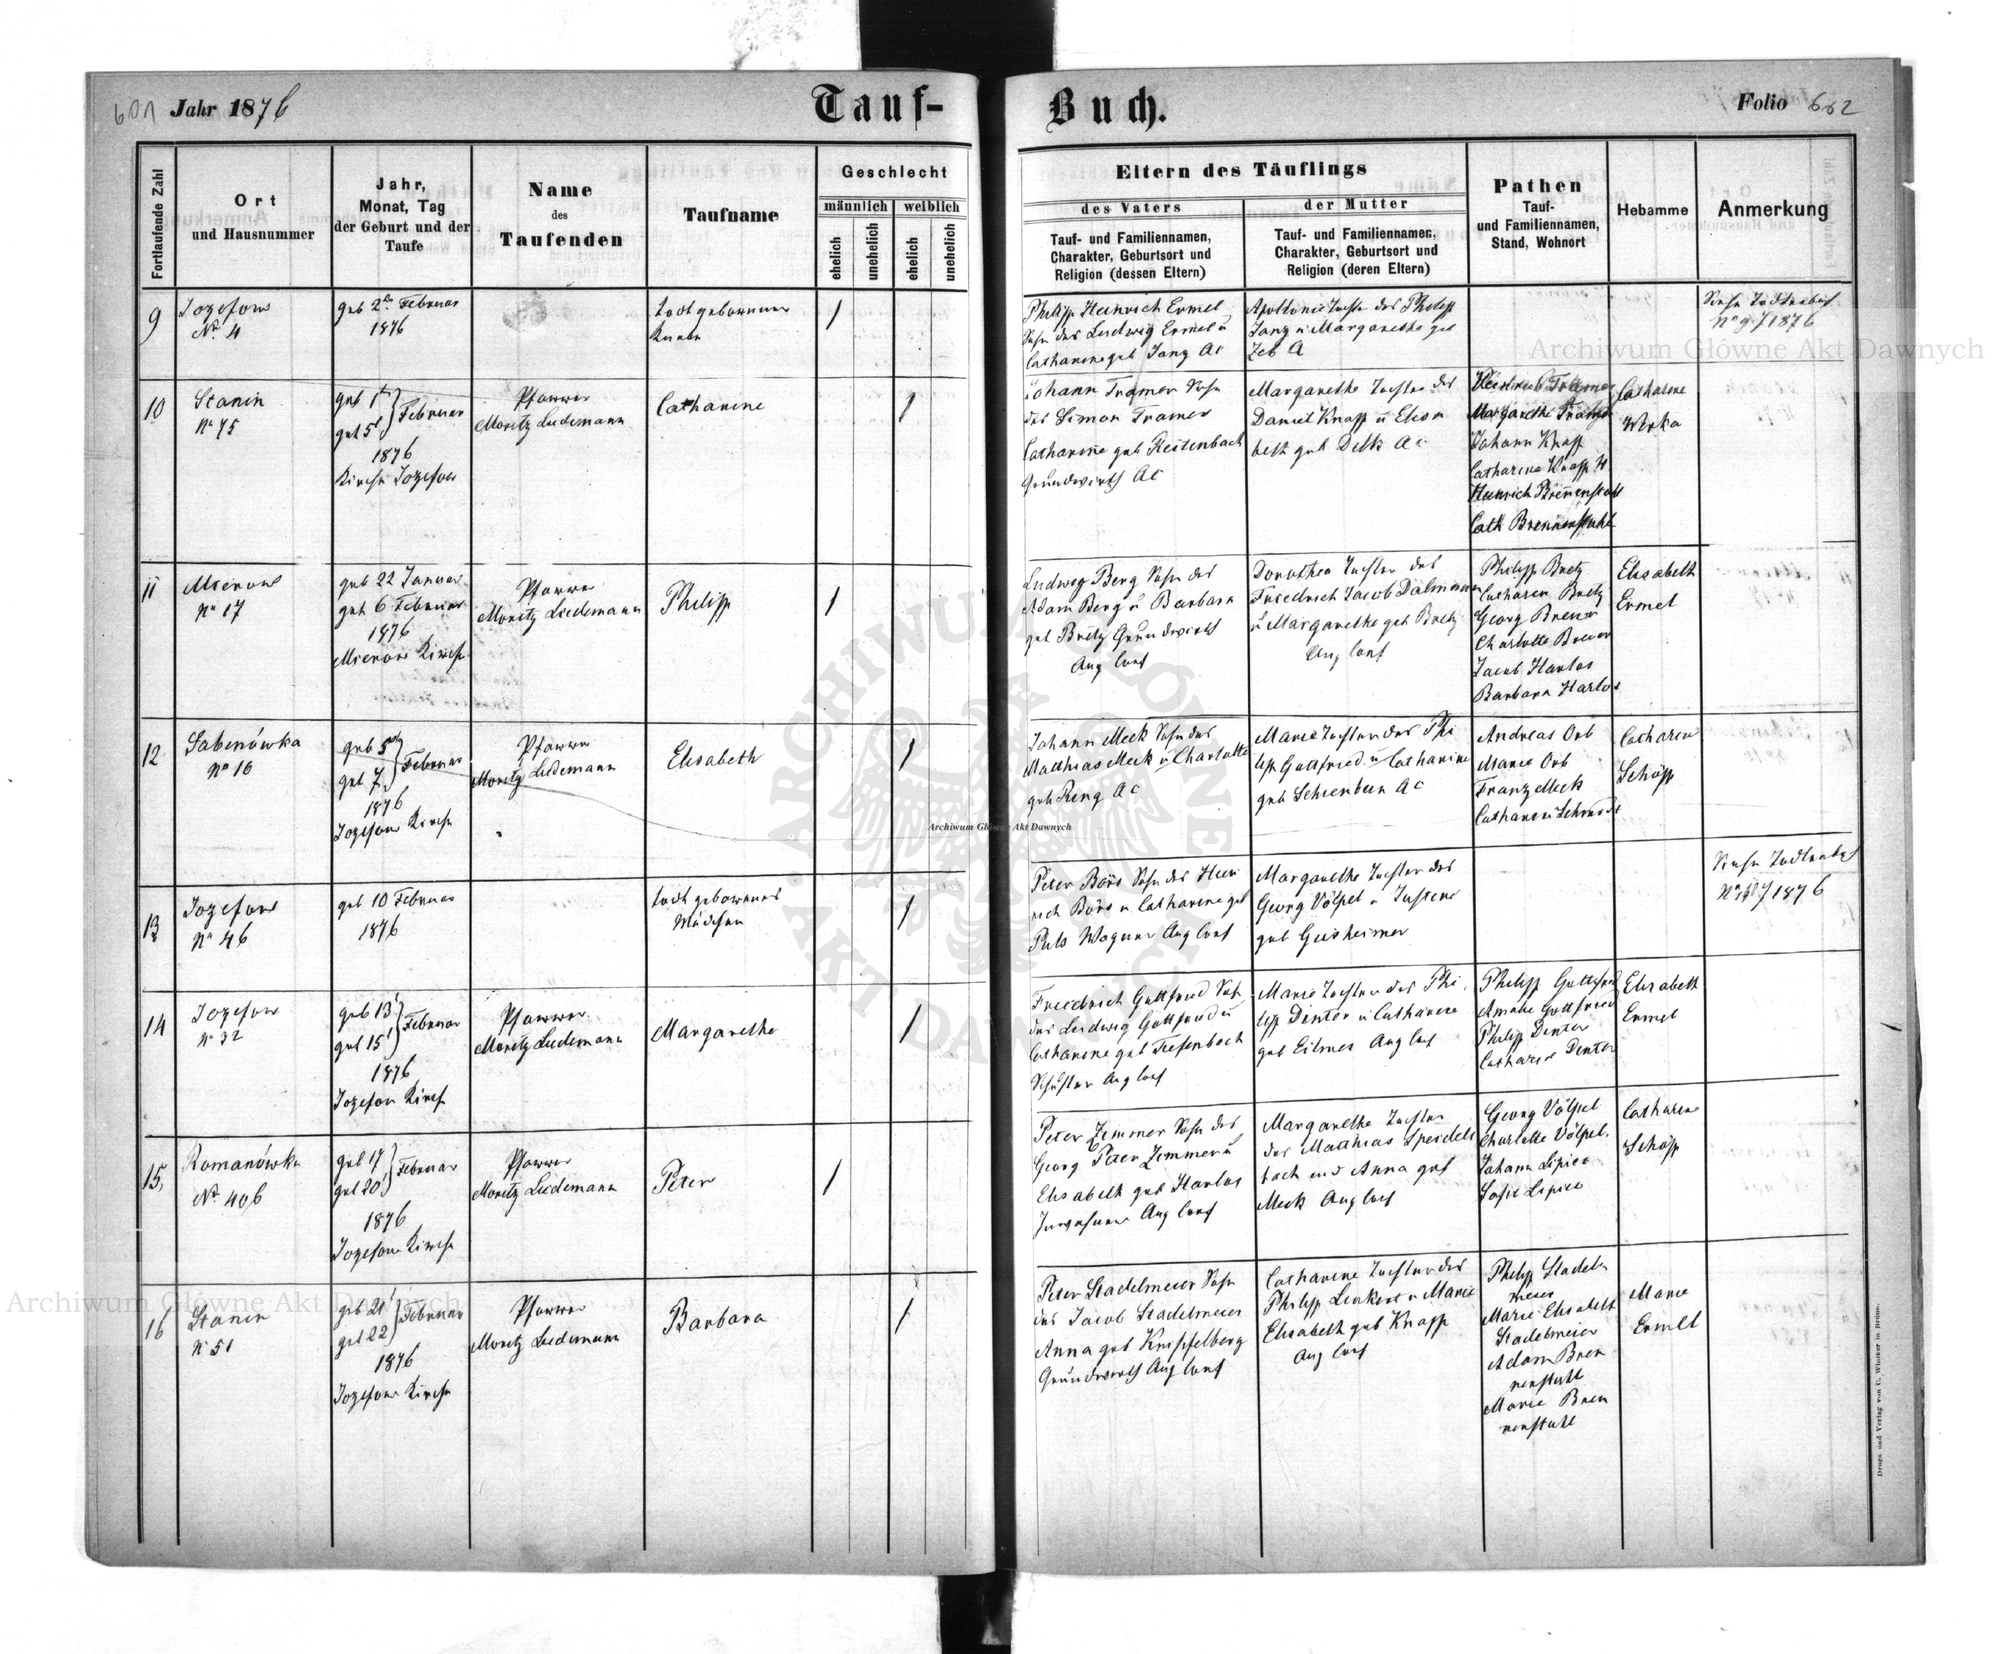 601 Jahr 1876 Tauf-
Buch. Folio 602
Fortlaufende Zahl
Ort
und Hausnummer
Jahr,
Monat, Tag
der Geburt und der
Taufe
Name
des
Taufenden
Taufname
Geschlecht
männlich weiblich
ehelich unehelich ehelich unehelich
Eltern des Täuflings
des Vaters
Tauf- und Familiennamen,
Charakter, Geburtsort und
Religion (dessen Eltern)
der Mutter
Tauf- und Familiennamen,
Charakter, Geburtsort und
Religion (deren Eltern)
Pathen
Tauf-
und Familiennamen,
Stand, Wohnort
Hebamme
Anmerkung
9
Jozefow
No 4
geb 2 Februar
1876
todtgeborener
Knabe
/
Philipp Heinrich Ermel
Sohn des Ludwig Ermel u
Catharine geb Jang AC
Apollonie Tochter des Philipp
Jang u Margarethe geb
A
Siehe Todtenbuch
No 9 1876
10
Stanin
No 75
geb 1
get 5 Februar
1876
Kirche Jozefow
Pfarrer
Moritz Ludemann
Catharine
/
Johann Tramer Sohn
des Simon Tramer
Catharine geb Reitenbach
Grundwirth AC
Margarethe Tochter des
Daniel Knapp u Elisa
beth geb Delk AC
Heinrich Tramer
Margarethe Tramer
Johann Knapp
Catharine Knapp
Heinrich Brennenstuhl
Cath Brennenstuhl
Catharine
Werka
11
Mierow
No 17
geb 22 Januar
get 6 Februar
1876
Mierow Kirche
Pfarrer
Moritz Ludemann
Philipp
/
Ludwig Berg Sohn des
Adam Berg u Barbara
geb Bretz Grundwirth
Aug Conf
Dorothea Tochter des
Friedrich Jacob Dalmann
u Margarethe geb Bretz
Aug Conf
Philipp Bretz
Catharine Bretz
Georg Brenner
Charlotte
Jacob Harlos
Barbara Harlos
Elisabeth
Ermel
12
Sabinówka
No 16
geb 5
get 7 Februar
1876
Jozefow Kirche
Pfarrer
Moritz Ludemann
Elisabeth
/
Johann Meck Sohn des
Matthias Meck u Charlotte
geb Ring AC
Marie Tochter des Phi
lipp Gottfried u Catharine
geb AC
Andreas Orb
Marie Orb
Franz Meck
Catharine Schmidt
Catharine
Schöpp
13
Jozefow
No 46
geb 10 Februar
1876
todtgeborenes
Mädchen
/
Peter Börs Sohn des Hein
rich Börs u Catharine geb
Wagner Aug Conf
Margarethe Tochter des
Georg Völpel u Justine
geb Geisheimer
Siehe Todtenbuch
1876
14
Jozefow
No 32
geb 13
get 15 Februar
1876
Jozefow Kirche
Pfarrer
Moritz Ludemann
Margarethe
/
Friedrich Gottfried Sohn
des Ludwig Gottfried u
Catharine geb Tiefenbach
Schuster Aug Conf
Marie Tochter des Phi
lipp Denter u Catharine
geb Eilmes Aug Conf
Philipp Gottfried
Amalie Gottfried
Philipp Denter
Catharine Denter
Elisabeth
Ermel
15,
Romanówka
No 406
geb 17
get 20 Februar
1876
Jozefow Kirche
Pfarrer
Moritz Ludemann
Peter
/
Peter Zimmer Sohn des
Georg Peter Zimmer u
Elisabeth geb Harlos
Inwohner Aug Conf
Margarethe Tochter
des Matthias Speidels
bach und Anna geb
Meck Aug Conf
Georg Völpel
Charlotte Völpel.
Johann Lipiec
Sofie Lipiec
Catharine
Schöpp
16
Stanin
No 51
geb 21
get 22 Februar
1876
Jozefow Kirche
Pfarrer
Moritz Ludemann
Barbara
/
Peter Stadelmeier Sohn
des Jacob Stadelmeier
Anna geb Knipfelberg
Grundwirth Aug Conf
Catharine Tochter des
Philipp Linkert u Marie
Elisabeth geb Knapp
Aug Conf
Philipp Stadel
meier
Marie Elisabeth
Stadelmeier
Adam Bren
nenstuhl
Marie Bren
nenstuhl
Marie
Ermel
Druck und Verlag von C. Winiker in Brünn.
Archiwum Główne Akt Dawnych
Archiwum Główne Akt Dawnych
Archiwum Główne Akt Dawnych
ARCHIWUM GŁÓWNE AKT DAWNYCH